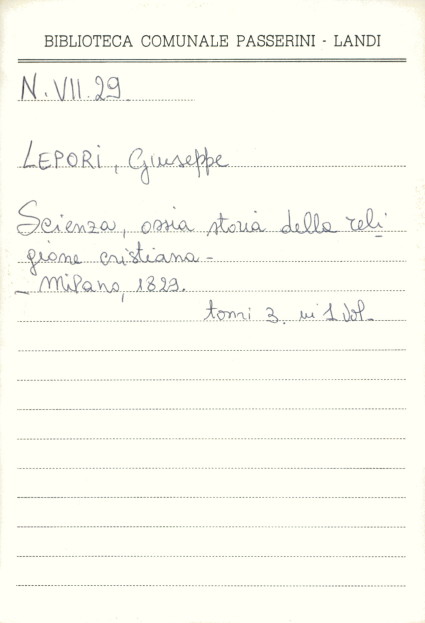 BIBLIOTECA COMUNALE PASSERINI - LANDI
N. VII. 29.
LEPORI, Giuseppe
Scienza, ossia storia della reli
gione cristiana -
- Milano, 1829.
tomi 3. in 1 Vol.